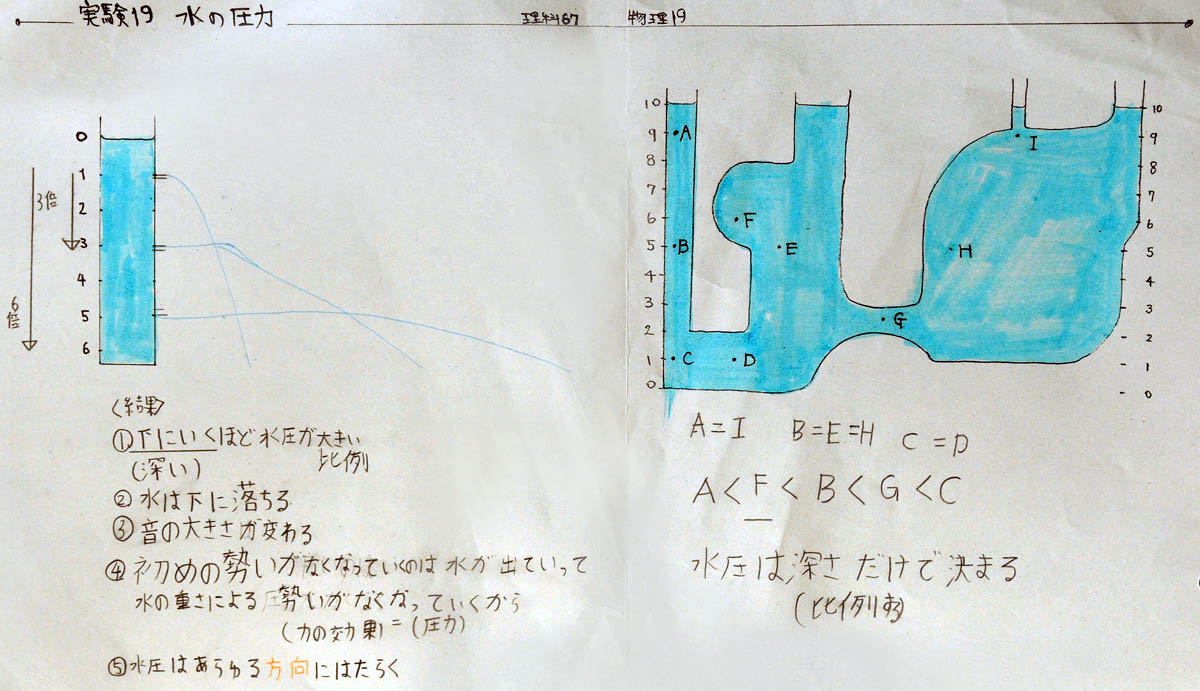 実験19 水の圧力
理科67 物理19
0
1
2
3
4
5
6
3倍
6倍
〈結果〉
①下にいくほど水圧が大きい
(深い) 比例
②水は下に落ちる
③音の大きさが変わる
④初めの勢いがなくなっていくのは水が出ていって
水の重さによる勢いがなくなっていくから
(力の効果)=(圧力)
⑤水圧はあらゆる方向にはたらく
10
9
8
7
6
5
4
3
2
1
0
A
B
C
D
E
F
G
H
I
10
9
8
7
6
5
4
3
2
1
0
A=I B=E=H C=D
A<F<B<G<C
水圧は深さだけで決まる
(比例する)